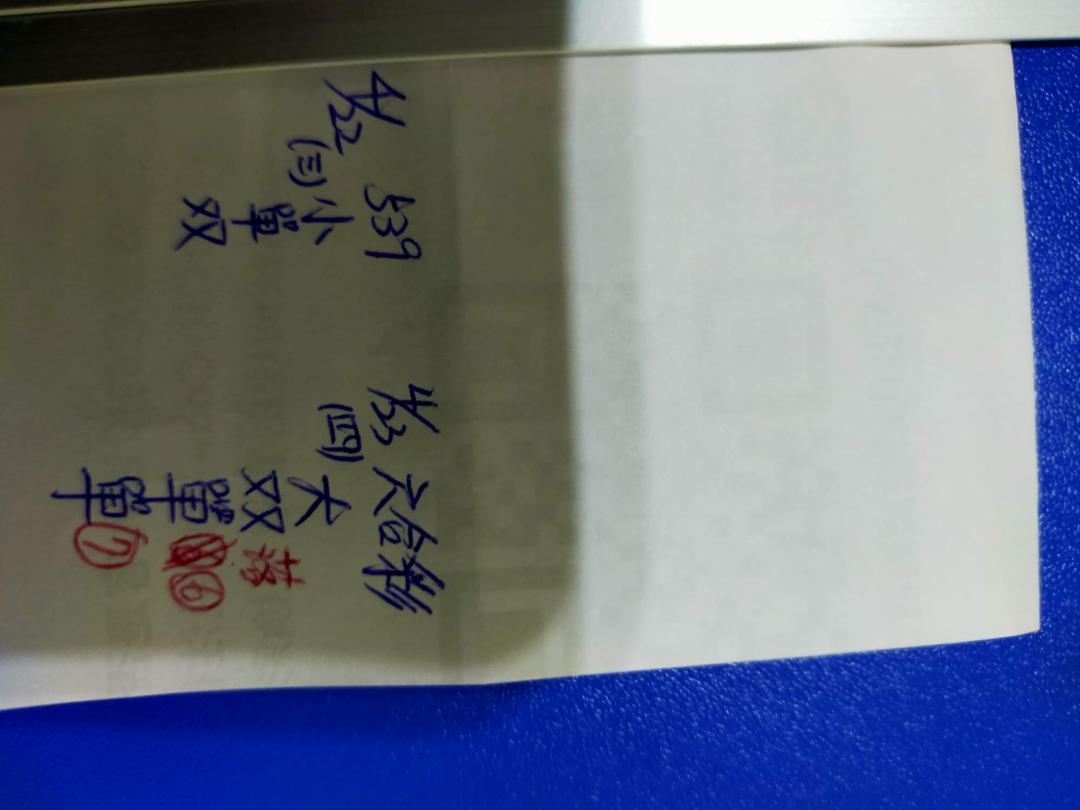 4/22 539
(三)小
單
双
4/23 六合彩
(四)大
双 落
單 ⑥
單 ⑦